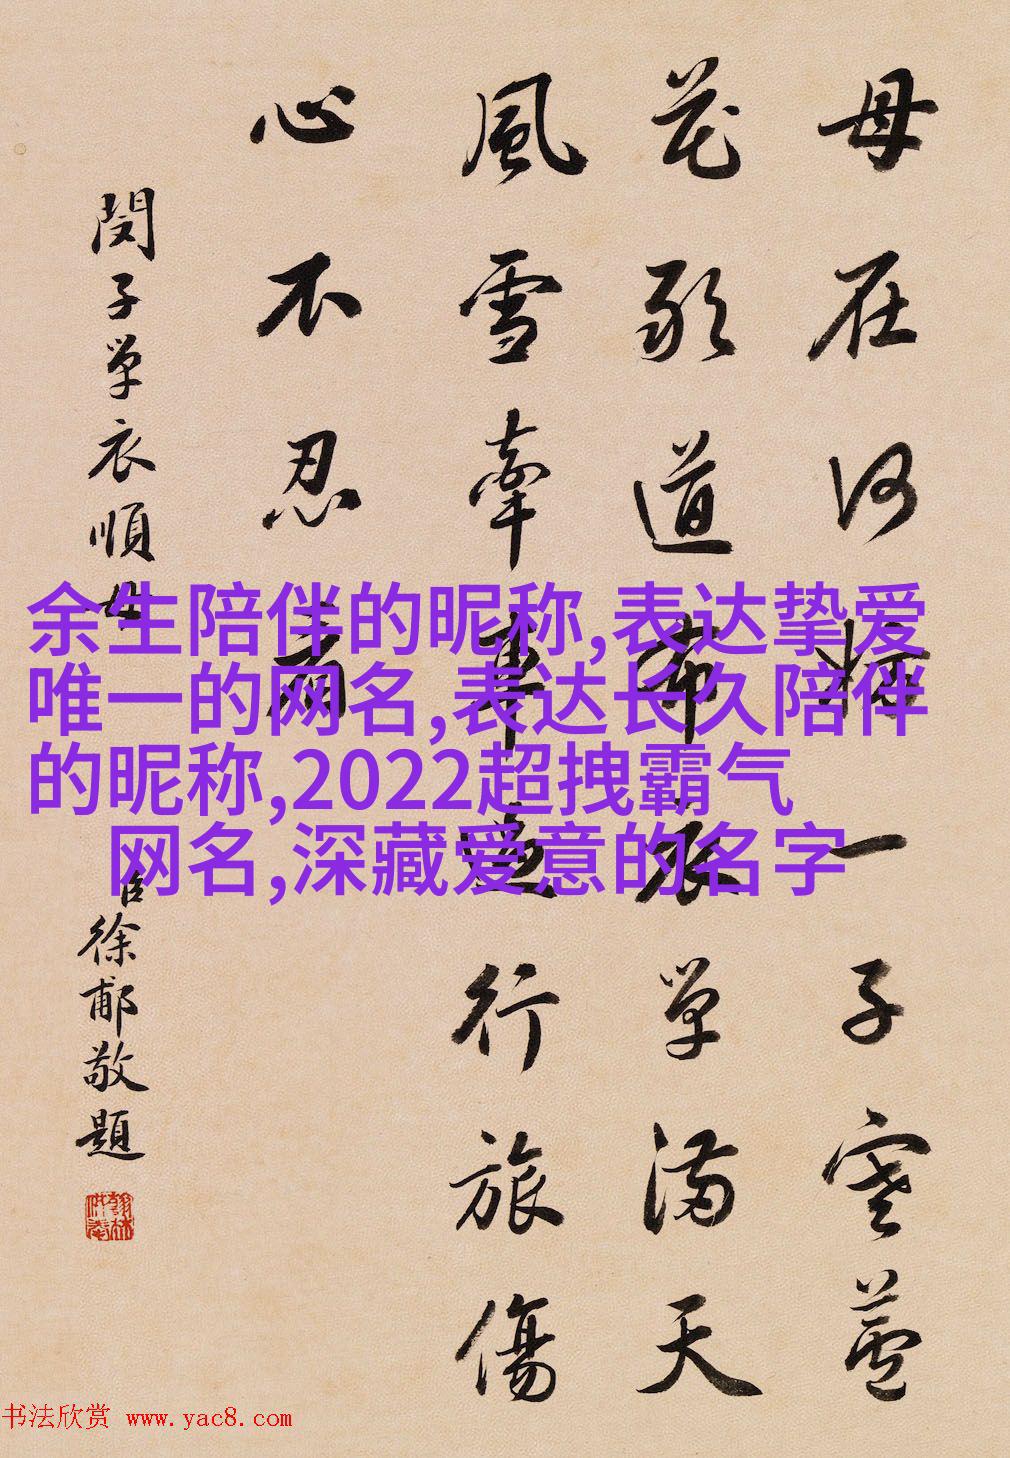 母在何妨一子寒蘆
花敢道布衣單滿天
風雪牽車遠行旅傷
心不忍
閔子單衣順母
臣徐郙敬題
余生陪伴的昵称,表达挚爱
唯一的网名,表达长久陪伴
的昵称,2022超拽霸气
网名,深藏爱意的名字
书法欣赏 www.yac8.com